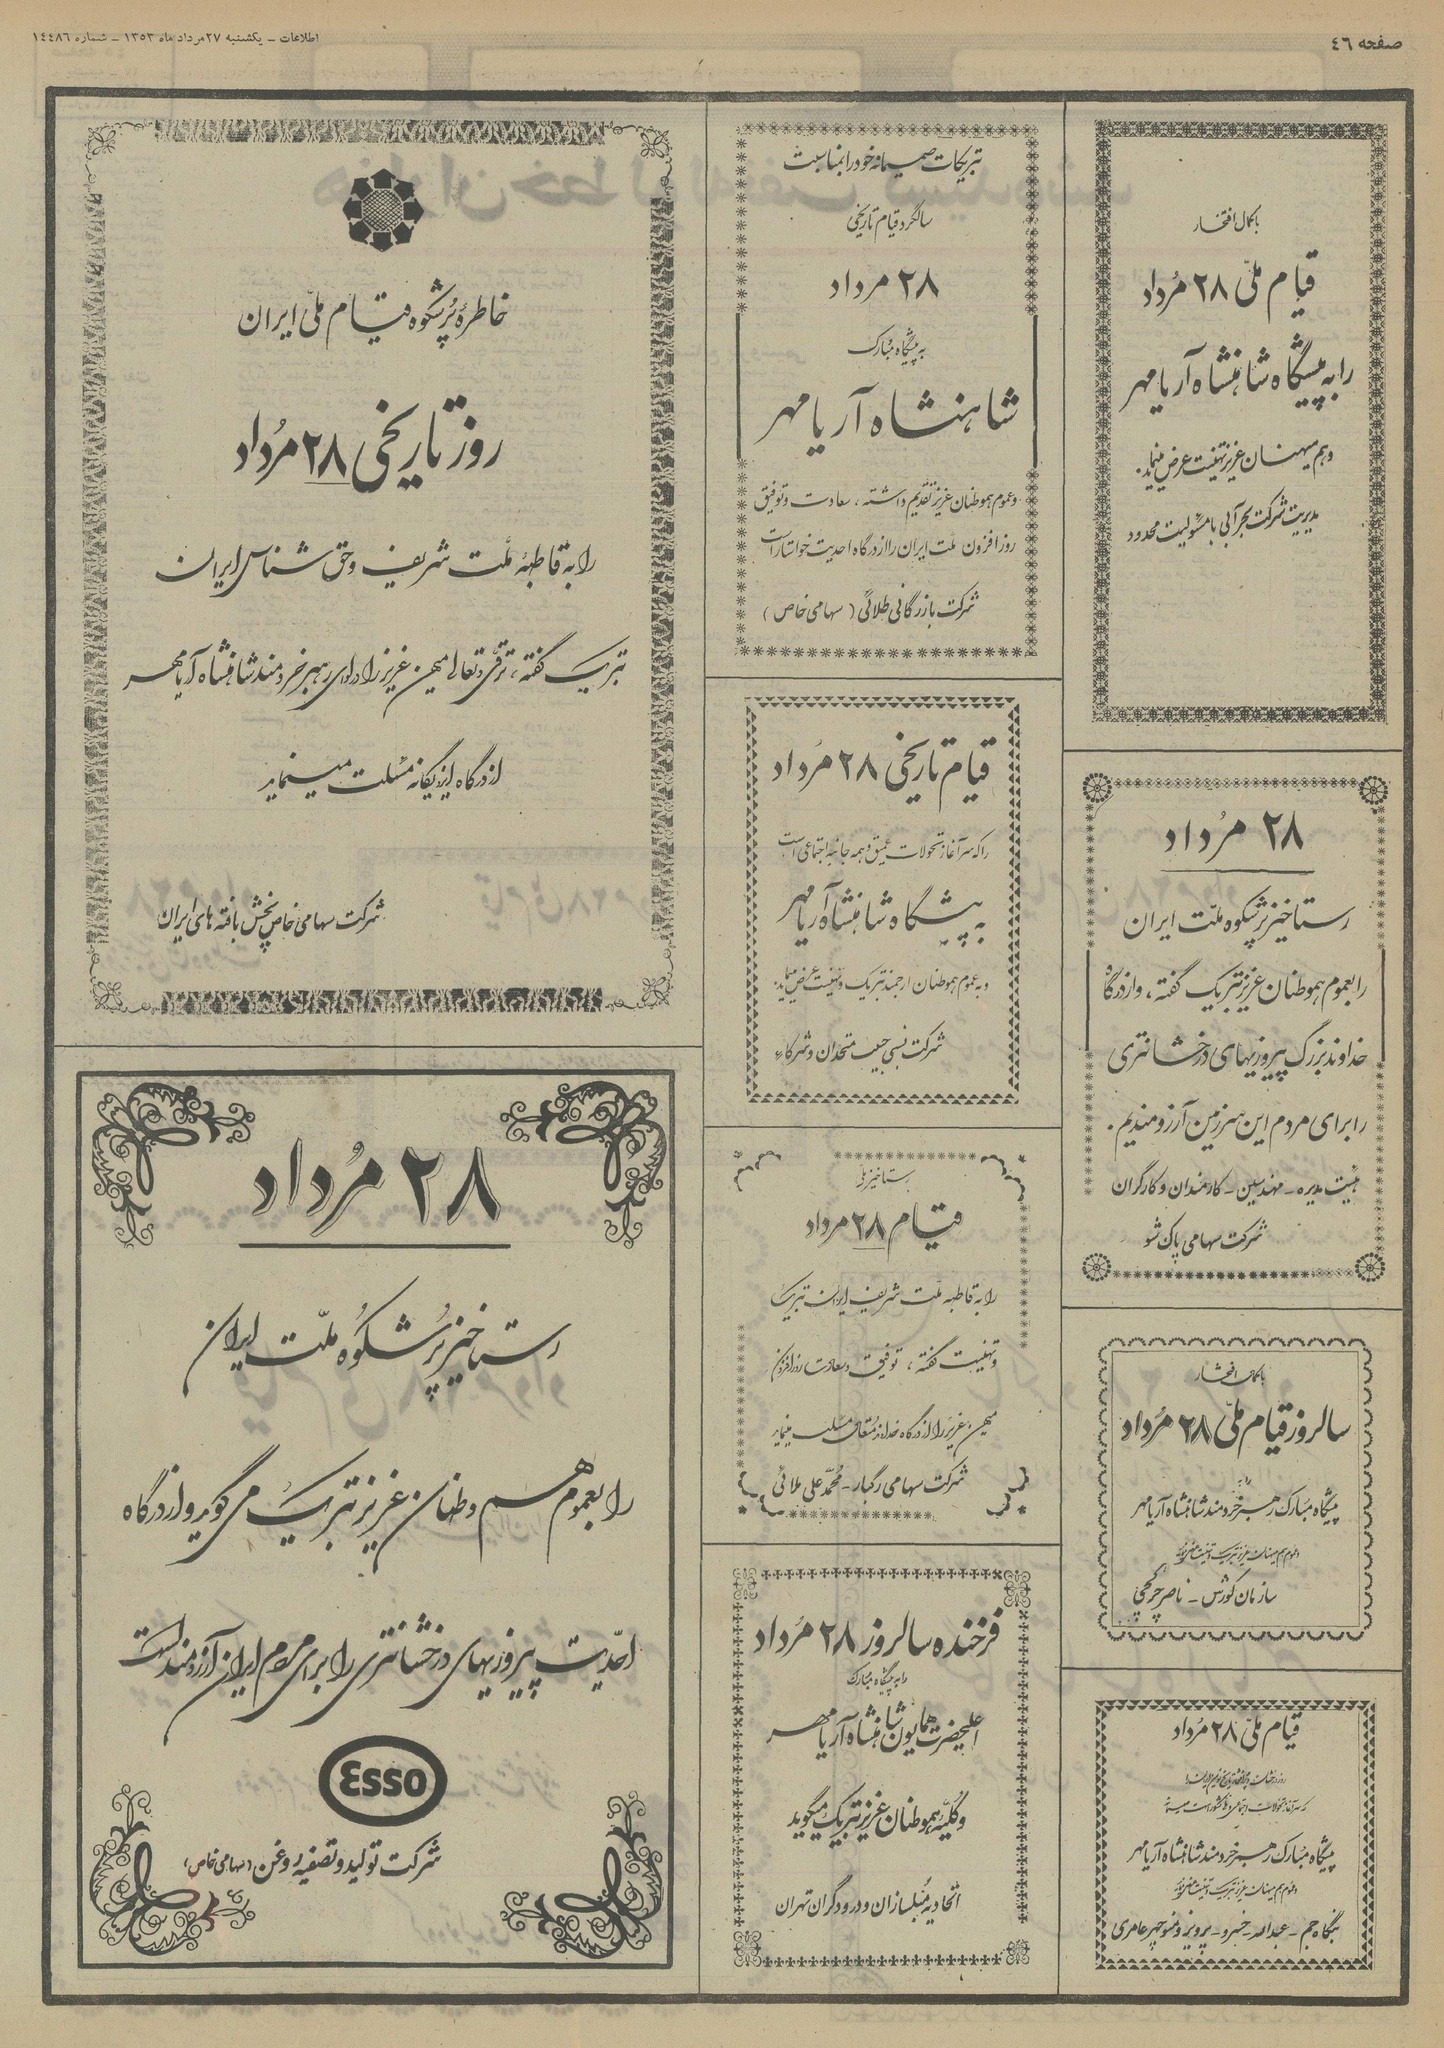 صفحه ٤٦
اطلاعات - یکشنبه ۲۷ مرداد ماه ۱۳۵۳ - شماره ۱٤٤٨٦
با کمال افتخار
قیام ملّی ۲۸ مُرداد
را به پیشگاه شاهنشاه آریامهر
و هم میهنان عزیز تهنیت عرض مینماید.
مدیریت شرکت بحر آبی با مسئولیت محدود
۲۸ مُرداد
رستاخیز پرشکوه ملّت ایران
را بعموم هموطنان عزیز تبریک گفته، و از درگاه
خداوند بزرگ پیروزیهای درخشانتری
را برای مردم این سرزمین آرزومندیم.
هیئت مدیره - مهندسین - کارمندان و کارگران
شرکت سهامی پاکشو
با کمال افتخار
سالروز قیام ملّی ۲۸ مُرداد
را به
پیشگاه مبارک رهبر خردمند شاهنشاه آریامهر
و عموم هم میهنان عزیز تبریک و تهنیت
سازمان کورس - ناصر
قیام ملّی ۲۸ مُرداد
که سرآغاز تحولات
پیشگاه مُبارک رهبر خردمند شاهنشاه آریامهر
و عموم هم میهنان عزیز تبریک و تهنیت
بنگاه جم - عبدالله - خسرو - پرویز و منوچهر عامری
تبریکات صمیمانه خود را بمناسبت
سالگرد قیام تاریخی
۲۸ مرداد
به پیشگاه مبارک
شاهنشاه آریامهر
و عموم هموطنان عزیز تقدیم داشته، سعادت و توفیق
روزافزون ملّت ایران را از درگاه احدیت خواستار است
شرکت بازرگانی طلائی (سهامی خاص)
قیام تاریخی ۲۸ مُرداد
را که سرآغاز تحولات عمیق و همه جانبه اجتماعی است
به پیشگاه شاهنشاه آریامهر
و به عموم هموطنان ارجمند تبریک و تهنیت عرض مینماید.
شرکت نسبی حبیب متحدان و شرکاء
رستاخیز ملی
قیام ۲۸ مرداد
را به قاطبه ملّت شریف ایران تبریک
و تهنیت گفته، توفیق و سعادت روزافزون
میهن عزیز را از درگاه خداوند متعال مسئلت مینماید
شرکت سهامی رگبار - مُحمّد علی طلائی
فرخنده سالروز ۲۸ مُرداد
را به پیشگاه مُبارک
اعلیحضرت همایون شاهنشاه آریامهر
و کُلیّه هموطنان عزیز تبریک میگوید
اتحادیه مُبلسازان و درودگران تهران
خاطرهٔ پُرشکوه قیام ملّی ایران
روز تاریخی ۲۸ مُرداد
را به قاطبهٔ ملّت شریف و حق شناس ایران
تبریک گفته، ترقی و تعالی میهن عزیز را در لوای رهبر خردمند شاهنشاه آریامهر
از درگاه ایزد یگانه مسئلت مینماید
شرکت سهامی خاص پخش بافته های ایران
۲۸ مُرداد
رستاخیز پُرشکُوه ملّت ایران
را بعموم هم وطنان عزیز تبریک می گوید و از درگاه
احدّیت پیروزیهای درخشانتری را برای مردم ایران آرزومند است
Esso
شرکت تولید و تصفیه روغن (سهامی خاص)